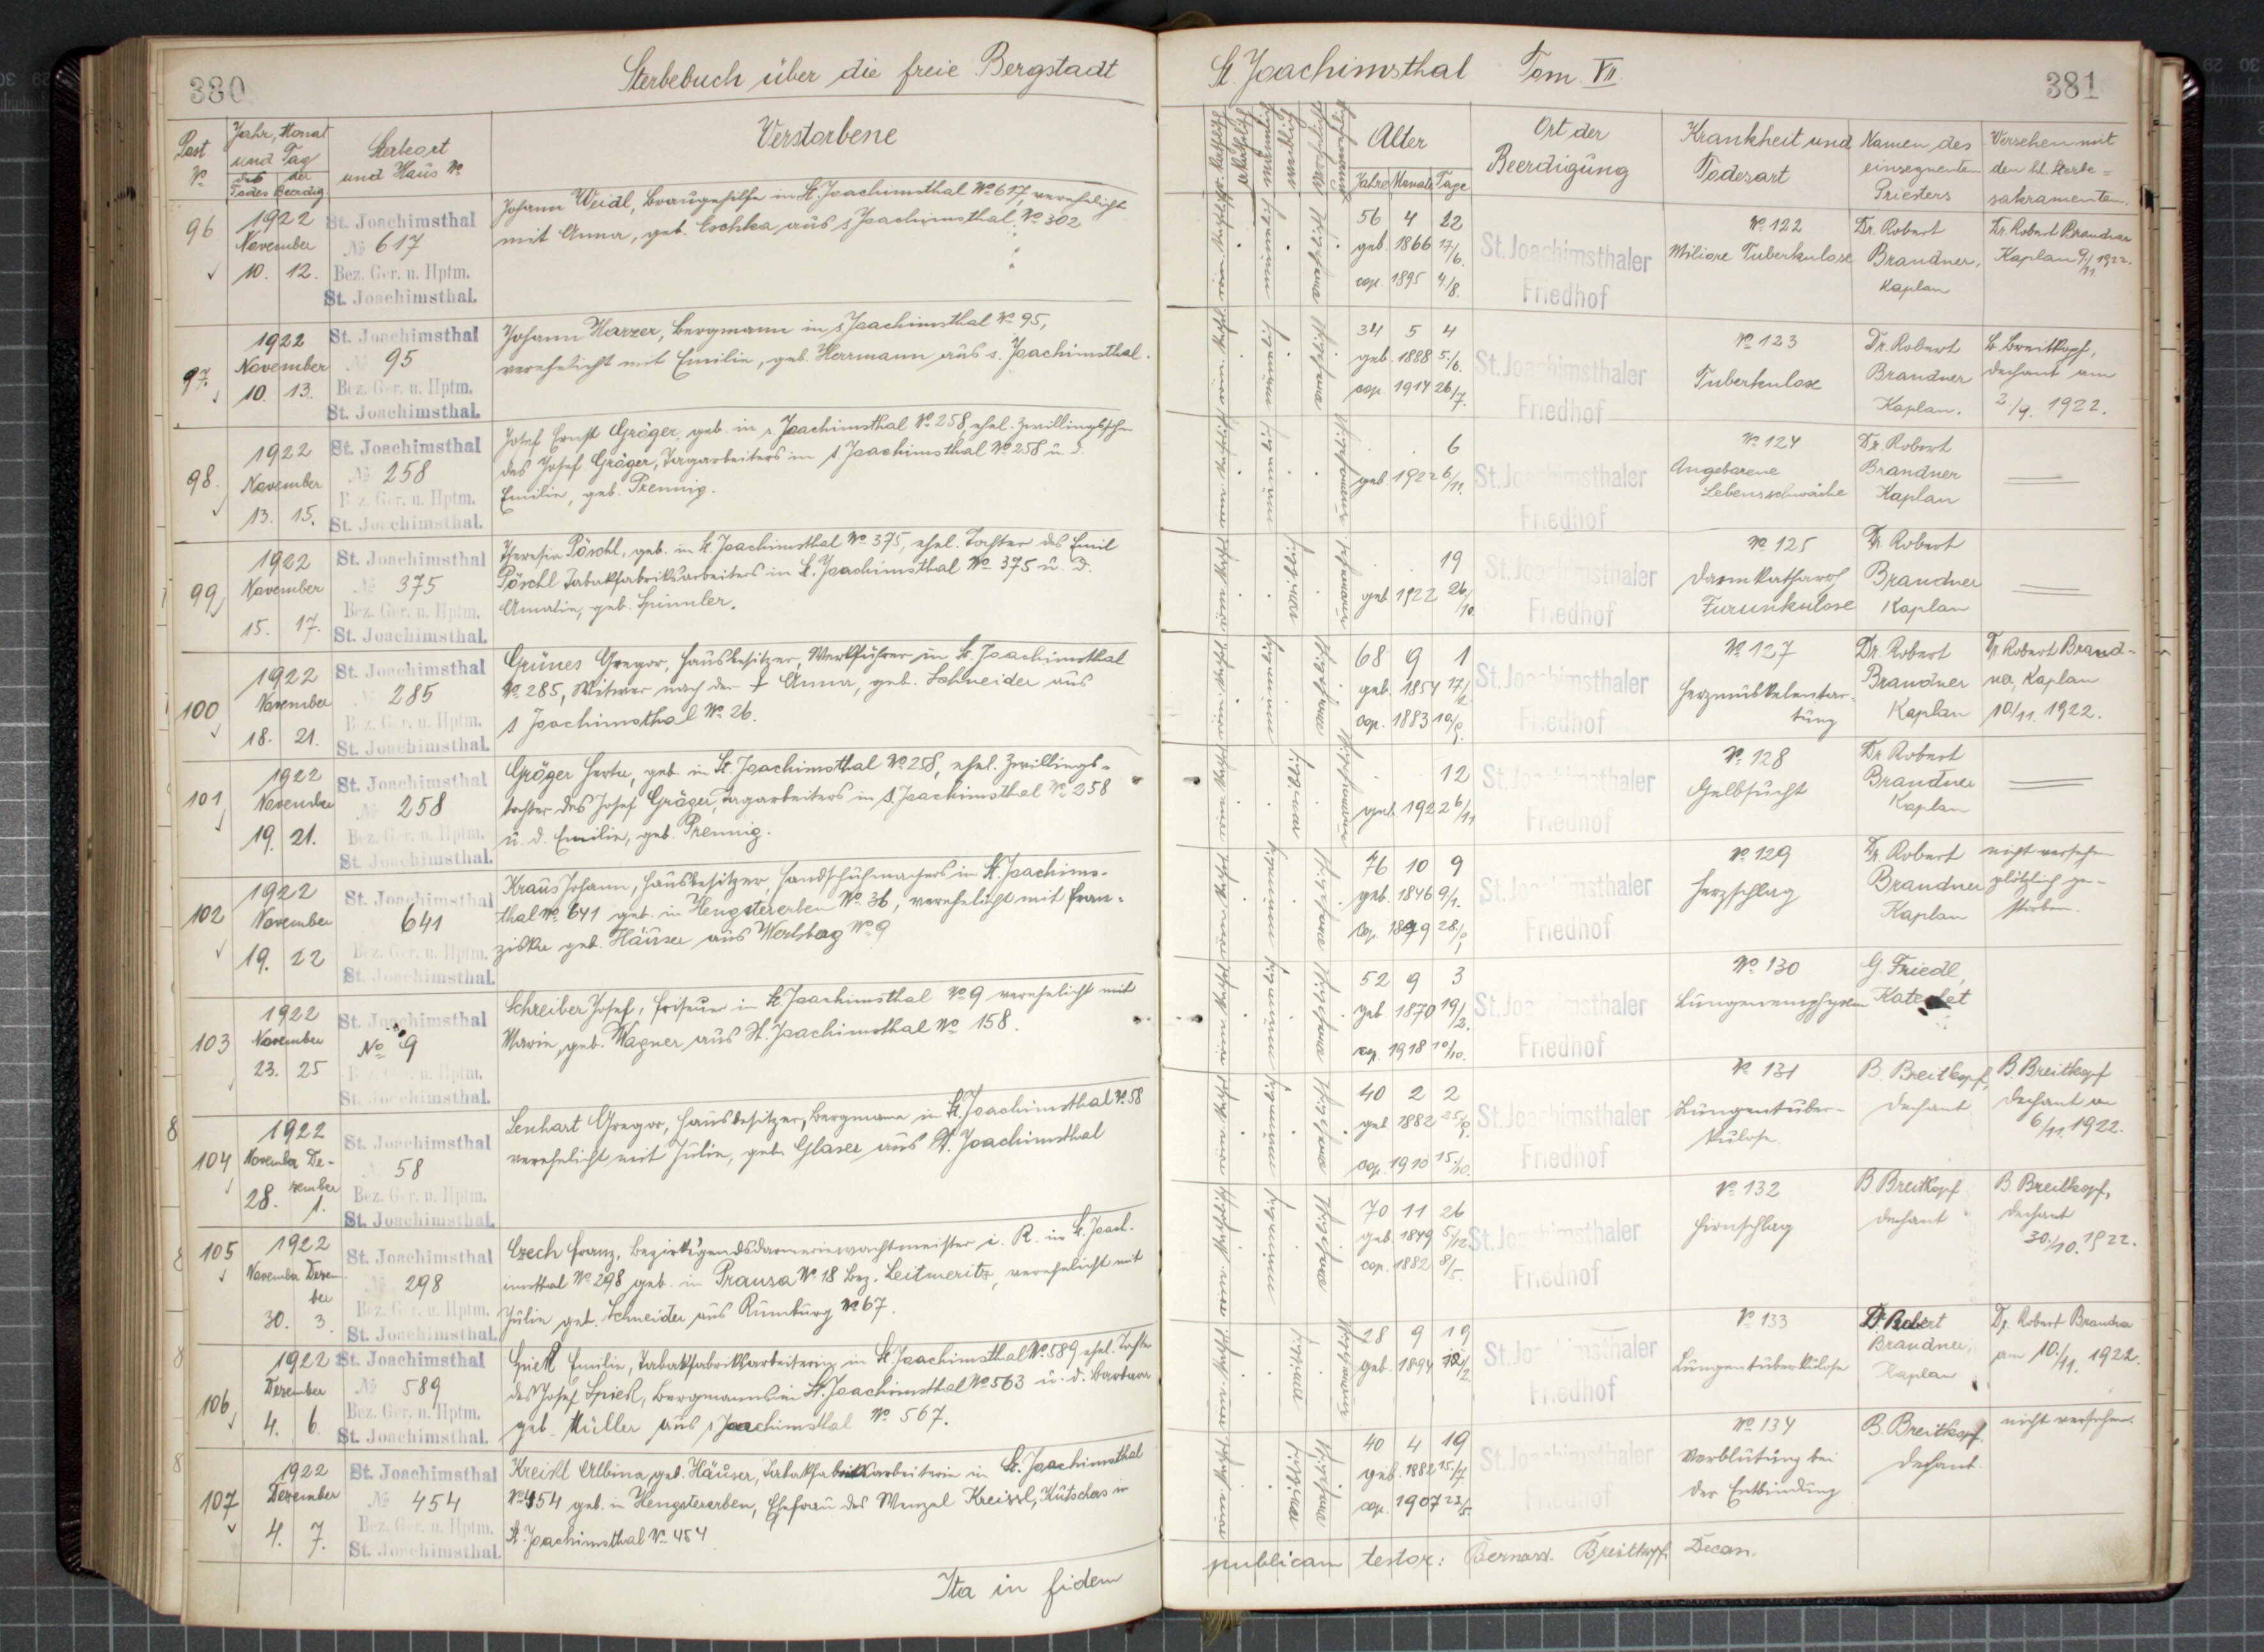 380
Sterbebuch über die freie Bergstadt
Post
No
Jahr, Monat
und Tag
des
Todes
der
Beerdig
Sterbeort
und Haus No
Verstorbene
96
1922
November
10. 12.
St. Joachimsthal
No 617
Bez. Ger. u. Hptm.
St. Joachimsthal.
Johann Weidl, Braugehilfe in St. Joachimsthal No 617, verehelicht
mit Anna, geb. Eschka aus s Joachimsthal No 302
97.
1922
November
10. 13.
St. Joachimsthal
No 95
Bez. Ger. u. Hptm.
St. Joachimsthal.
Johann Harzer, Bergmann in s Joachimsthal No 95,
verehelicht mit Emilie, geb. Herrmann aus s. Joachimsthal.
98.
1922
November
13. 15.
St. Joachimsthal
No 258
Bez. Ger. u. Hptm.
St. Joachimsthal.
Josef Ernst Gröger, geb. in s Joachimsthal No 258, ehel. Zwillingssohn
des Josef Gröger, Tagarbeiters in s Joachimsthal No 258 u. d.
Emilie, geb. Prennig.
99
1922
November
15. 17.
St. Joachimsthal
No 375
Bez. Ger. u. Hptm.
St. Joachimsthal.
Theresia Pöschl, geb. in St. Joachimsthal No 375, ehel. Tochter des Emil
Pöschl Tabakfabriksarbeiters in St. Joachimsthal No 375 u. d.
Amalie, geb. Spinnler.
100
1922
November
18. 21.
St. Joachimsthal
No 285
Bez. Ger. u. Hptm.
St. Joachimsthal.
Grünes Gregor, Hausbesitzer, Werkführer in St. Joachimsthal
No 285, Witwer nach der † Anna, geb. Schneider aus
s Joachimsthal No 26.
101
1922
November
19. 21.
St. Joachimsthal
No 258
Bez. Ger. u. Hptm.
St. Joachimsthal.
Gröger Herta, geb. in St. Joachimsthal No 258, ehel. Zwillings-
tochter des Josef Gröger, Tagarbeiters in S. Joachimsthal No 258
u. d. Emilie, geb. Prennig.
102
1922
November
19. 22
St. Joachimsthal
641
Bez. Ger. u. Hptm.
St. Joachimsthal.
Kraus Johann, Hausbesitzer, Handschuhmachers in St. Joachims-
thal No 641 geb. in Hengstererben No 36, verehelicht mit Fran-
ziska geb. Häuser aus Werlsberg No 9
103
1922
November
23. 25
St. Joachimsthal
No 9
Bez. Ger. u. Hptm.
St. Joachimsthal.
Schreiber Josef, Friseur in St. Joachimsthal No 9 verehelicht mit
Marie, geb. Wagner aus St. Joachimsthal No 158.
104
1922
November De-
zember
28. 1.
St. Joachimsthal
58
Bez. Ger. u. Hptm.
St. Joachimsthal.
Lenhart Gregor, Hausbesitzer, Bergmann in St. Joachimsthal No 58
verehelicht mit Julie, geb. Glaser aus St. Joachimsthal
105
1922
November Dezem-
ber
30. 3.
St. Joachimsthal
No 298
Bez. Ger. u. Hptm.
St. Joachimsthal.
Czech Franz, Bezirksgendarmeriewachtmeister i. R. in St. Joach-
imsthal No 298 geb. in Prausa No 18 Bez. Leitmeritz, verehelicht mit
Julie geb. Schneider aus Rumburg No 67.
106
1922
Dezember
4. 6.
St. Joachimsthal
No 589
Bez. Ger. u. Hptm.
St. Joachimsthal.
Spiek Emilie, Tabakfabriksarbeiterin in St. Joachimsthal No 589 ehel. Tochter
des Josef Spiek, Bergmanns in St. Joachimsthal No 563 u. d. Barbara
geb. Müller aus s Joachimsthal No 567.
107
1922
Dezember
4. 7.
St. Joachimsthal
No 454
Bez. Ger. u. Hptm.
St. Joachimsthal.
Kreißl Albina, geb. Häuser, Tabakfabriksarbeiterin in St. Joachimsthal
No 454 geb. in Hengstererben, Ehefrau des Wenzel Kreissl, Kutschers in
St. Joachimsthal No 454
Ita in fidem
St. Joachimsthal Tom VII.
381
Alter
Jahre Monate Tage
Ort der
Beerdigung
Krankheit und
Todesart
Namen des
einsegnenten
Priesters
Versehen mit
den hl. Sterbe-
sakramenten.
56 4 22
geb. 1866 17/6.
cop. 1895 4/8.
St. Joachimsthaler
Friedhof
No 122
Miliare Tuberkulose
Dr. Robert
Brandner,
Kaplan
Dr. Robert Brandner
Kaplan 9/11 1922.
34 5 4
geb. 1888 5./6.
cop. 1914 26/7.
St. Joachimsthaler
Friedhof
No 123
Tuberkulose
Dr. Robert
Brandner
Kaplan.
B. Breitkopf,
Dechant am
2/9. 1922.
6
geb. 1922 6/11.
St. Joachimsthaler
Friedhof
No 124
Angeborene
Lebensschwäche
Dr. Robert
Brandner
Kaplan
19
geb. 1922 26/10.
St. Joachimsthaler
Friedhof
No 125
Darmkatharrh
Furunkulose
Dr. Robert
Brandner
Kaplan
68 9 1
geb. 1854 17/2.
cop. 1883
St. Joachimsthaler
Friedhof
No 127
Herzmuskelentar-
tung
Dr. Robert
Brandner
Kaplan
Dr. Robert Brand-
ner, Kaplan
10/11. 1922.
12
geb. 1922 6/11
St. Joachimsthaler
Friedhof
No 128
Gelbsucht
Dr. Robert
Brandner
Kaplan
76 10 9
geb. 1846 9/1.
cop. 1879
St. Joachimsthaler
Friedhof
No 129
Herzschlag
Dr. Robert
Brandner
Kaplan
nicht versehen
plötzlich ge-
storben.
52 9 3
geb. 1870 19/2.
cop. 1918 10/10.
St. Joachimsthaler
Friedhof
No 130
Lungenemphysem
G. Friedl,
Katechet
40 2 2
geb. 1882
cop. 1910 15./10.
St. Joachimsthaler
Friedhof
No 131
Lungentuber-
kulose.
B. Breitkopf,
Dechant
B. Breitkopf
Dechant am
6/11. 1922.
70 11 26
geb. 1849 5./12.
cop. 1882 8/5.
St. Joachimsthaler
Friedhof
No 132
Hirnschlag
B. Breitkopf
Dechant
B. Breitkopf,
Dechant
30./10. 1922.
28 9 19
geb. 1894
St. Joachimsthaler
Friedhof
No 133
Lungentuberkulose
Dr. Robert
Brandner,
Kaplan
Dr. Robert Brandner
am 10./11. 1922.
40 4 19
geb. 1882 15./7
cop. 1907
St. Joachimsthaler
Friedhof
No 134
Verblutung bei
der Entbindung
B. Breitkopf.
Dechant.
nicht versehen.
publicam testor: Bernard. Breitkopf, Decan.